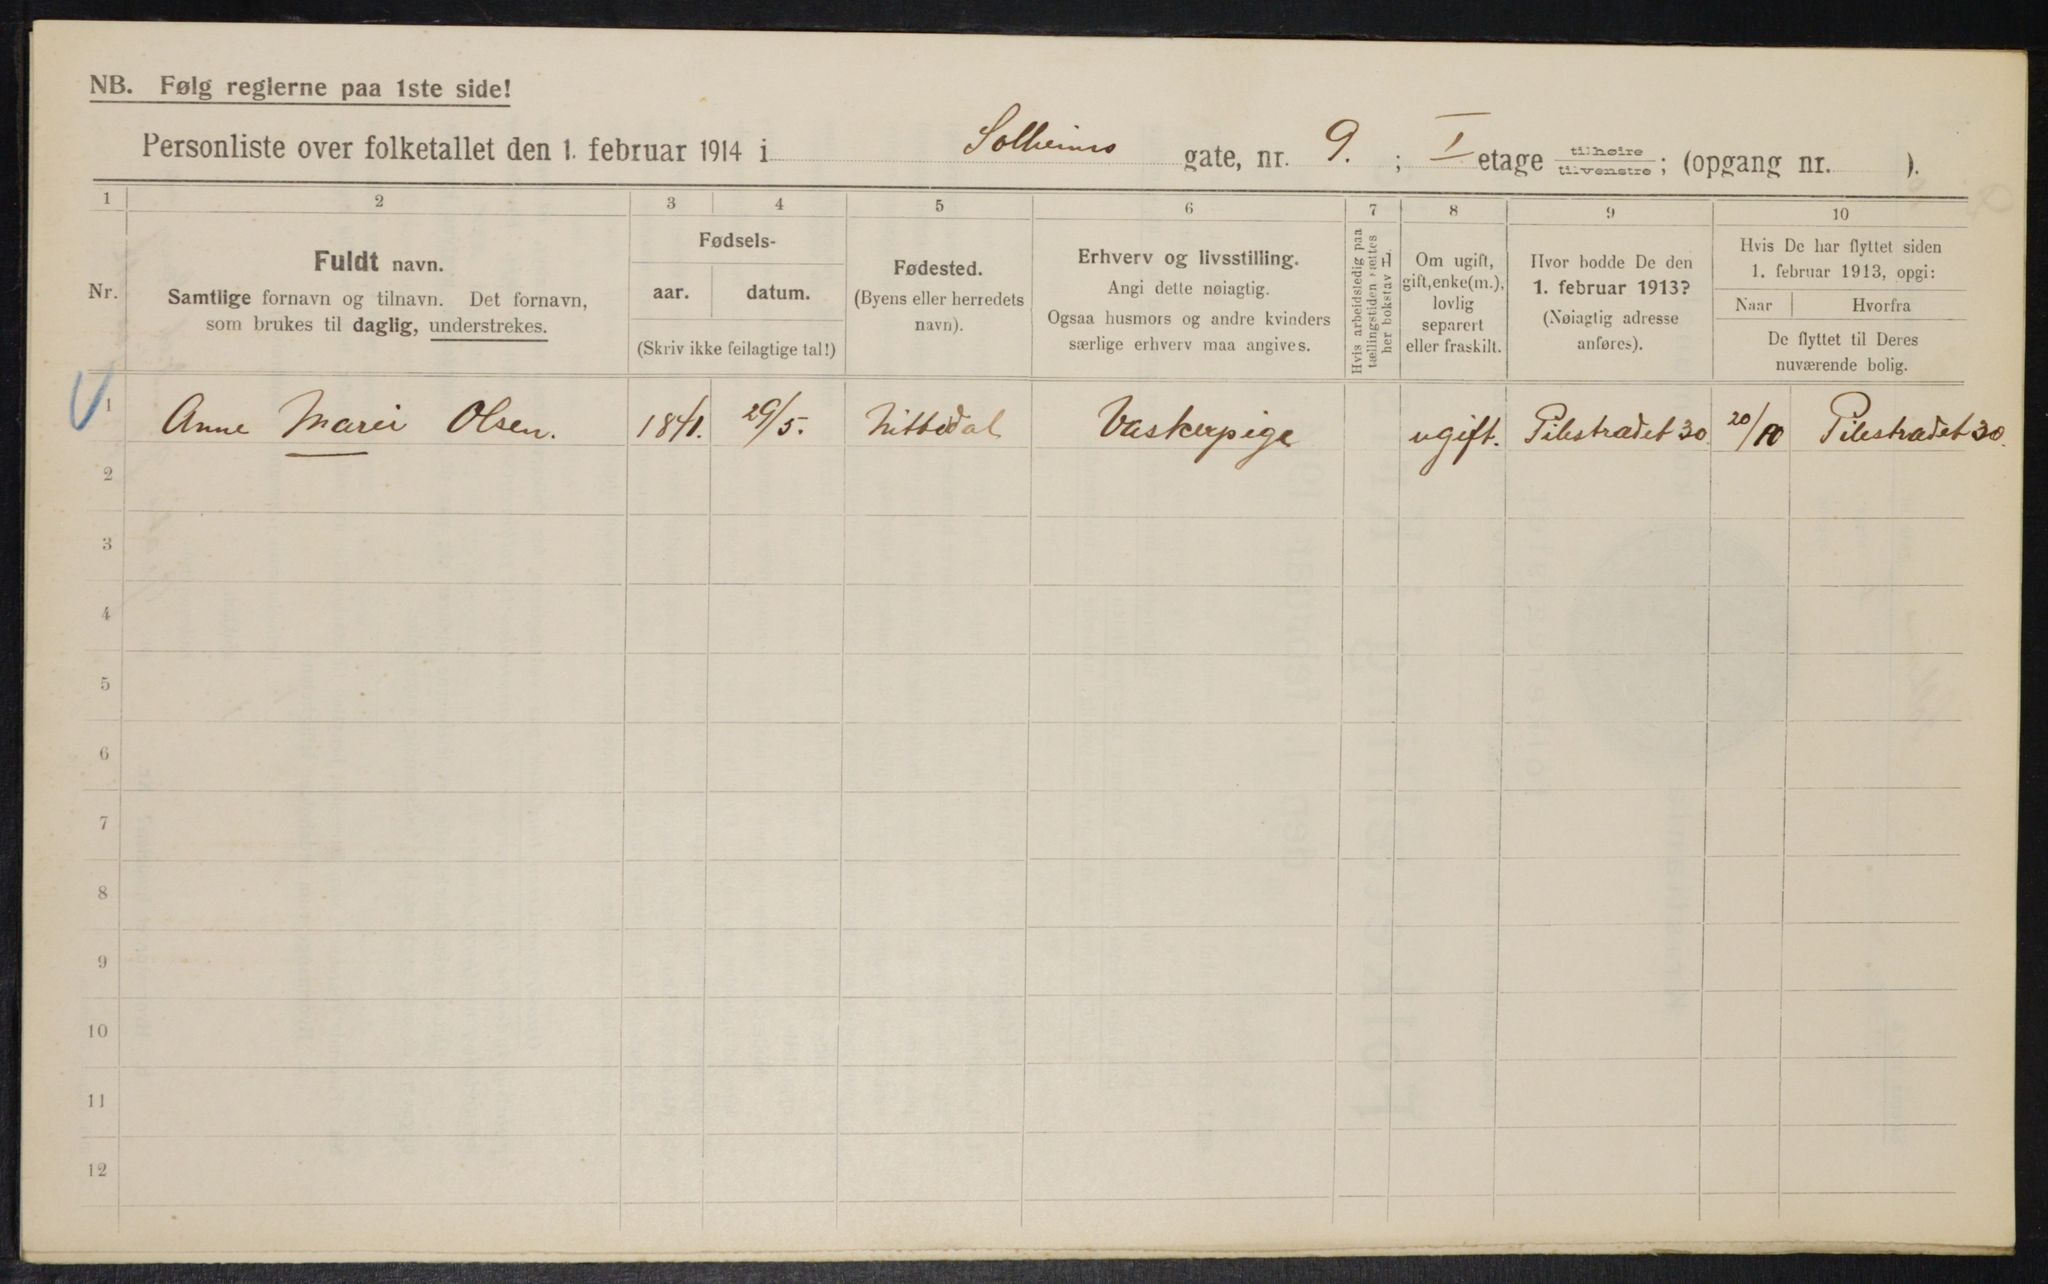 NB. Følg reglerne paa 1ste side!
Personliste over folketallet den 1. februar 1914 i Solheims gate, nr. 9. ; I etage tilhøire/tilvenstre; (opgang nr. ).
1 2 3 4 5 6 7 8 9 10
Nr.
Fuldt navn.
Samtlige fornavn og tilnavn. Det fornavn,
som brukes til daglig, understrekes.
Fødsels-
aar. datum.
(Skriv ikke feilagtige tal!)
Fødested.
(Byens eller herredets
navn).
Erhverv og livsstilling.
Angi dette nøiagtig.
Ogsaa husmors og andre kvinders
særlige erhverv maa angives.
Hvis arbeidsledig paa
tællingstiden sættes
her bokstav L.
Om ugift,
gift, enke(m.),
lovlig
separert
eller fraskilt.
Hvor bodde De den
1. februar 1913?
(Nøiagtig adresse
anføres).
Hvis De har flyttet siden
1. februar 1913, opgi:
Naar Hvorfra
De flyttet til Deres
nuværende bolig.
1 Anne Marei Olsen. 1841. 29/5. Nittedal Vaskerpige ugift. Pilestrædet 30. 20/10 Pilestrædet 30.
2
3
4
5
6
7
8
9
10
11
12